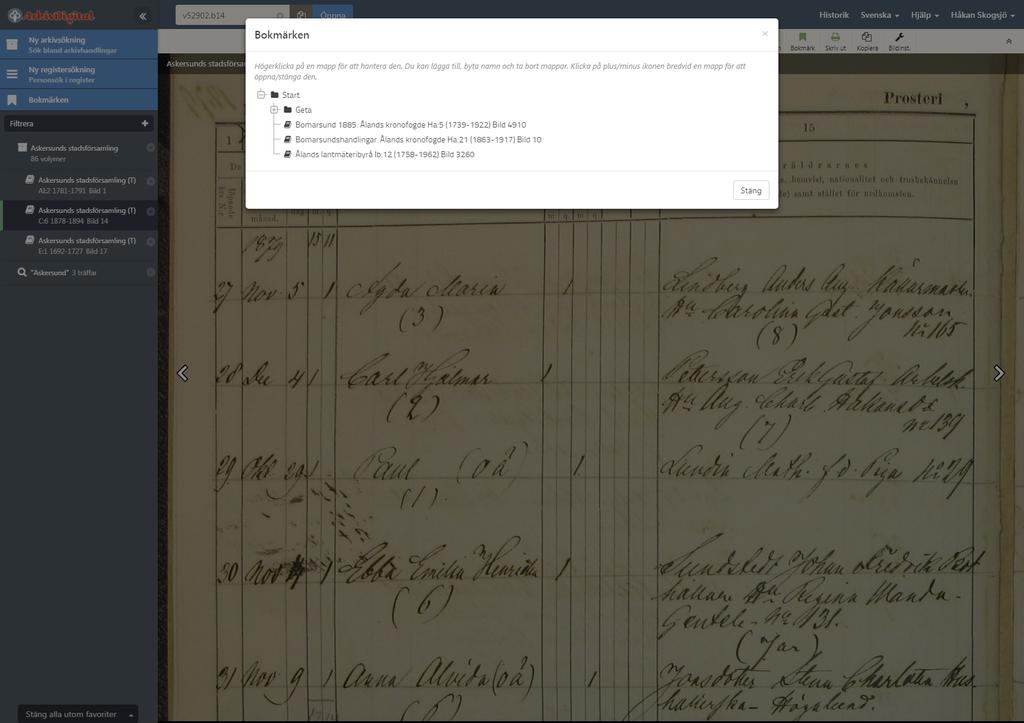 ArkivDigital
«
v52902.b14
Öppna
Historik
Svenska
Hjälp
Håkan Skogsjö
Ny arkivsökning
Sök bland arkivhandlingar
Ny registersökning
Personsök i register
Bokmärken
Filtrera
+
Askersunds stadsförsamling
86 volymer
Askersunds stadsförsamling (T)
AI:2 1781-1791 Bild 1
Askersunds stadsförsamling (T)
C:6 1878-1894 Bild 14
Askersunds stadsförsamling (T)
E:1 1692-1727 Bild 17
"Askersund" 3 träffar
Stäng alla utom favoriter
Bokmärk
Skriv ut
Kopiera
Bildinst.
Bokmärken
×
Högerklicka på en mapp för att hantera den. Du kan lägga till, byta namn och ta bort mappar. Klicka på plus/minus ikonen bredvid en mapp för att
öppna/stänga den.
Start
Geta
Bomarsund 1885. Ålands kronofogde Ha:5 (1739-1922) Bild 4910
Bomarsundshandlingar. Ålands kronofogde Ha:21 (1863-1917) Bild 10
Ålands lantmäteribyrå Ib:12 (1758-1962) Bild 3260
Stäng
Prosteri ,
1
15
hemvist, nationalitet och trosbekännelse
samt stället för nedkomsten.
1879 15 11
27 Nov 5 1 Agda Maria 1 Lindberg Anders Aug.
(3) Hu Carolina Gust. Jonsson
(8) No 165
28 De 4 1 Carl Hjalmar 1 Pettersson Erik Gustaf
(2) Hu Aug. Charl.
(7) No 139
29 Okt 29 1 Paul (oä) 1 Lundin Math. f.d. Piga No 29
(1)
30 Nov 1 Ebba Emilia 1 Sundstedt Johan Fredrik
(6) Hu Regina Manda
Gentele - No 131.
31 Nov 9 1 Anna Alvida (oä) 1 Jonsdotter Charlotta